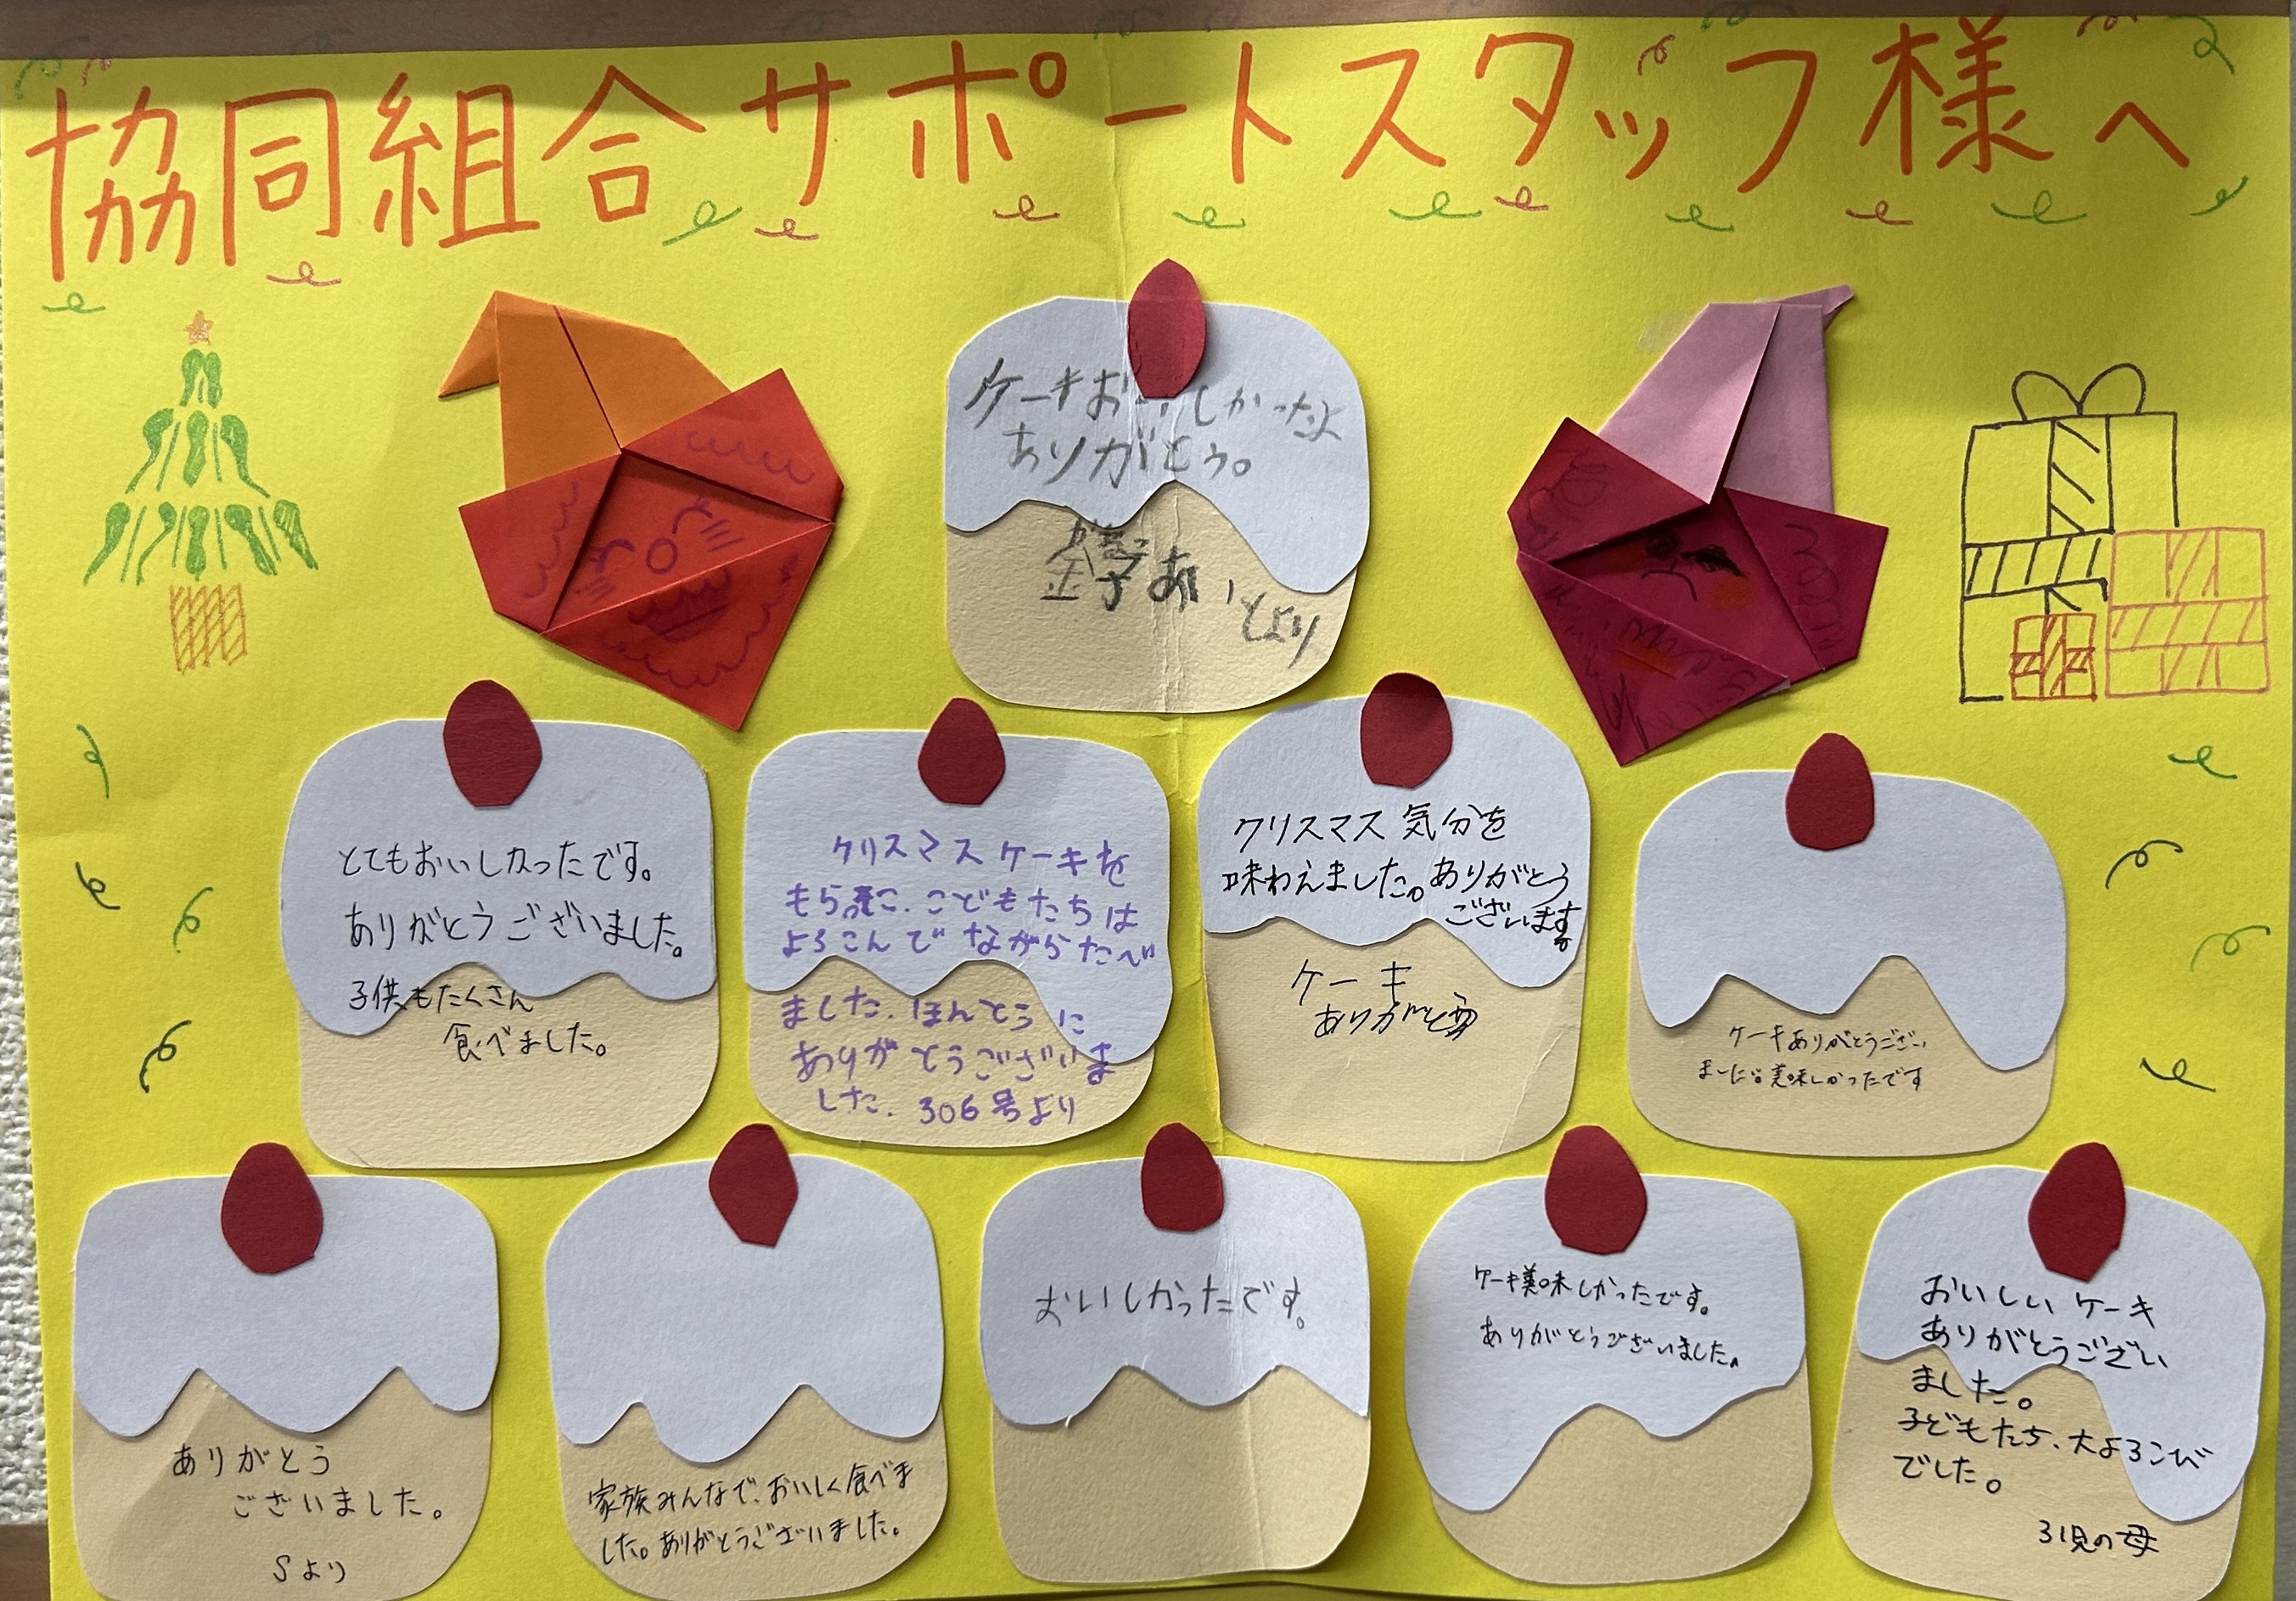 協同組合サポートスタッフ様へ
ケーキおいしかったよ
ありがとう。
より
とてもおいしかったです。
ありがとうございました。
子供もたくさん
食べました。
クリスマスケーキを
もら こどもたちは
よろこんでながらたべ
ました。ほんとうに
ありがとうございま
した。306号より
クリスマス気分を
味わえました。ありがとう
ございます。
ケーキ
ありがとう
ケーキありがとうござい
ました。美味しかったです
ありがとう
ございました。
Sより
家族みんなで、おいしく食べま
した。ありがとうございました。
おいしかったです。
ケーキ美味しかったです。
ありがとうございました。
おいしいケーキ
ありがとうござい
ました。
子どもたち、大よろこび
でした。
3児の母